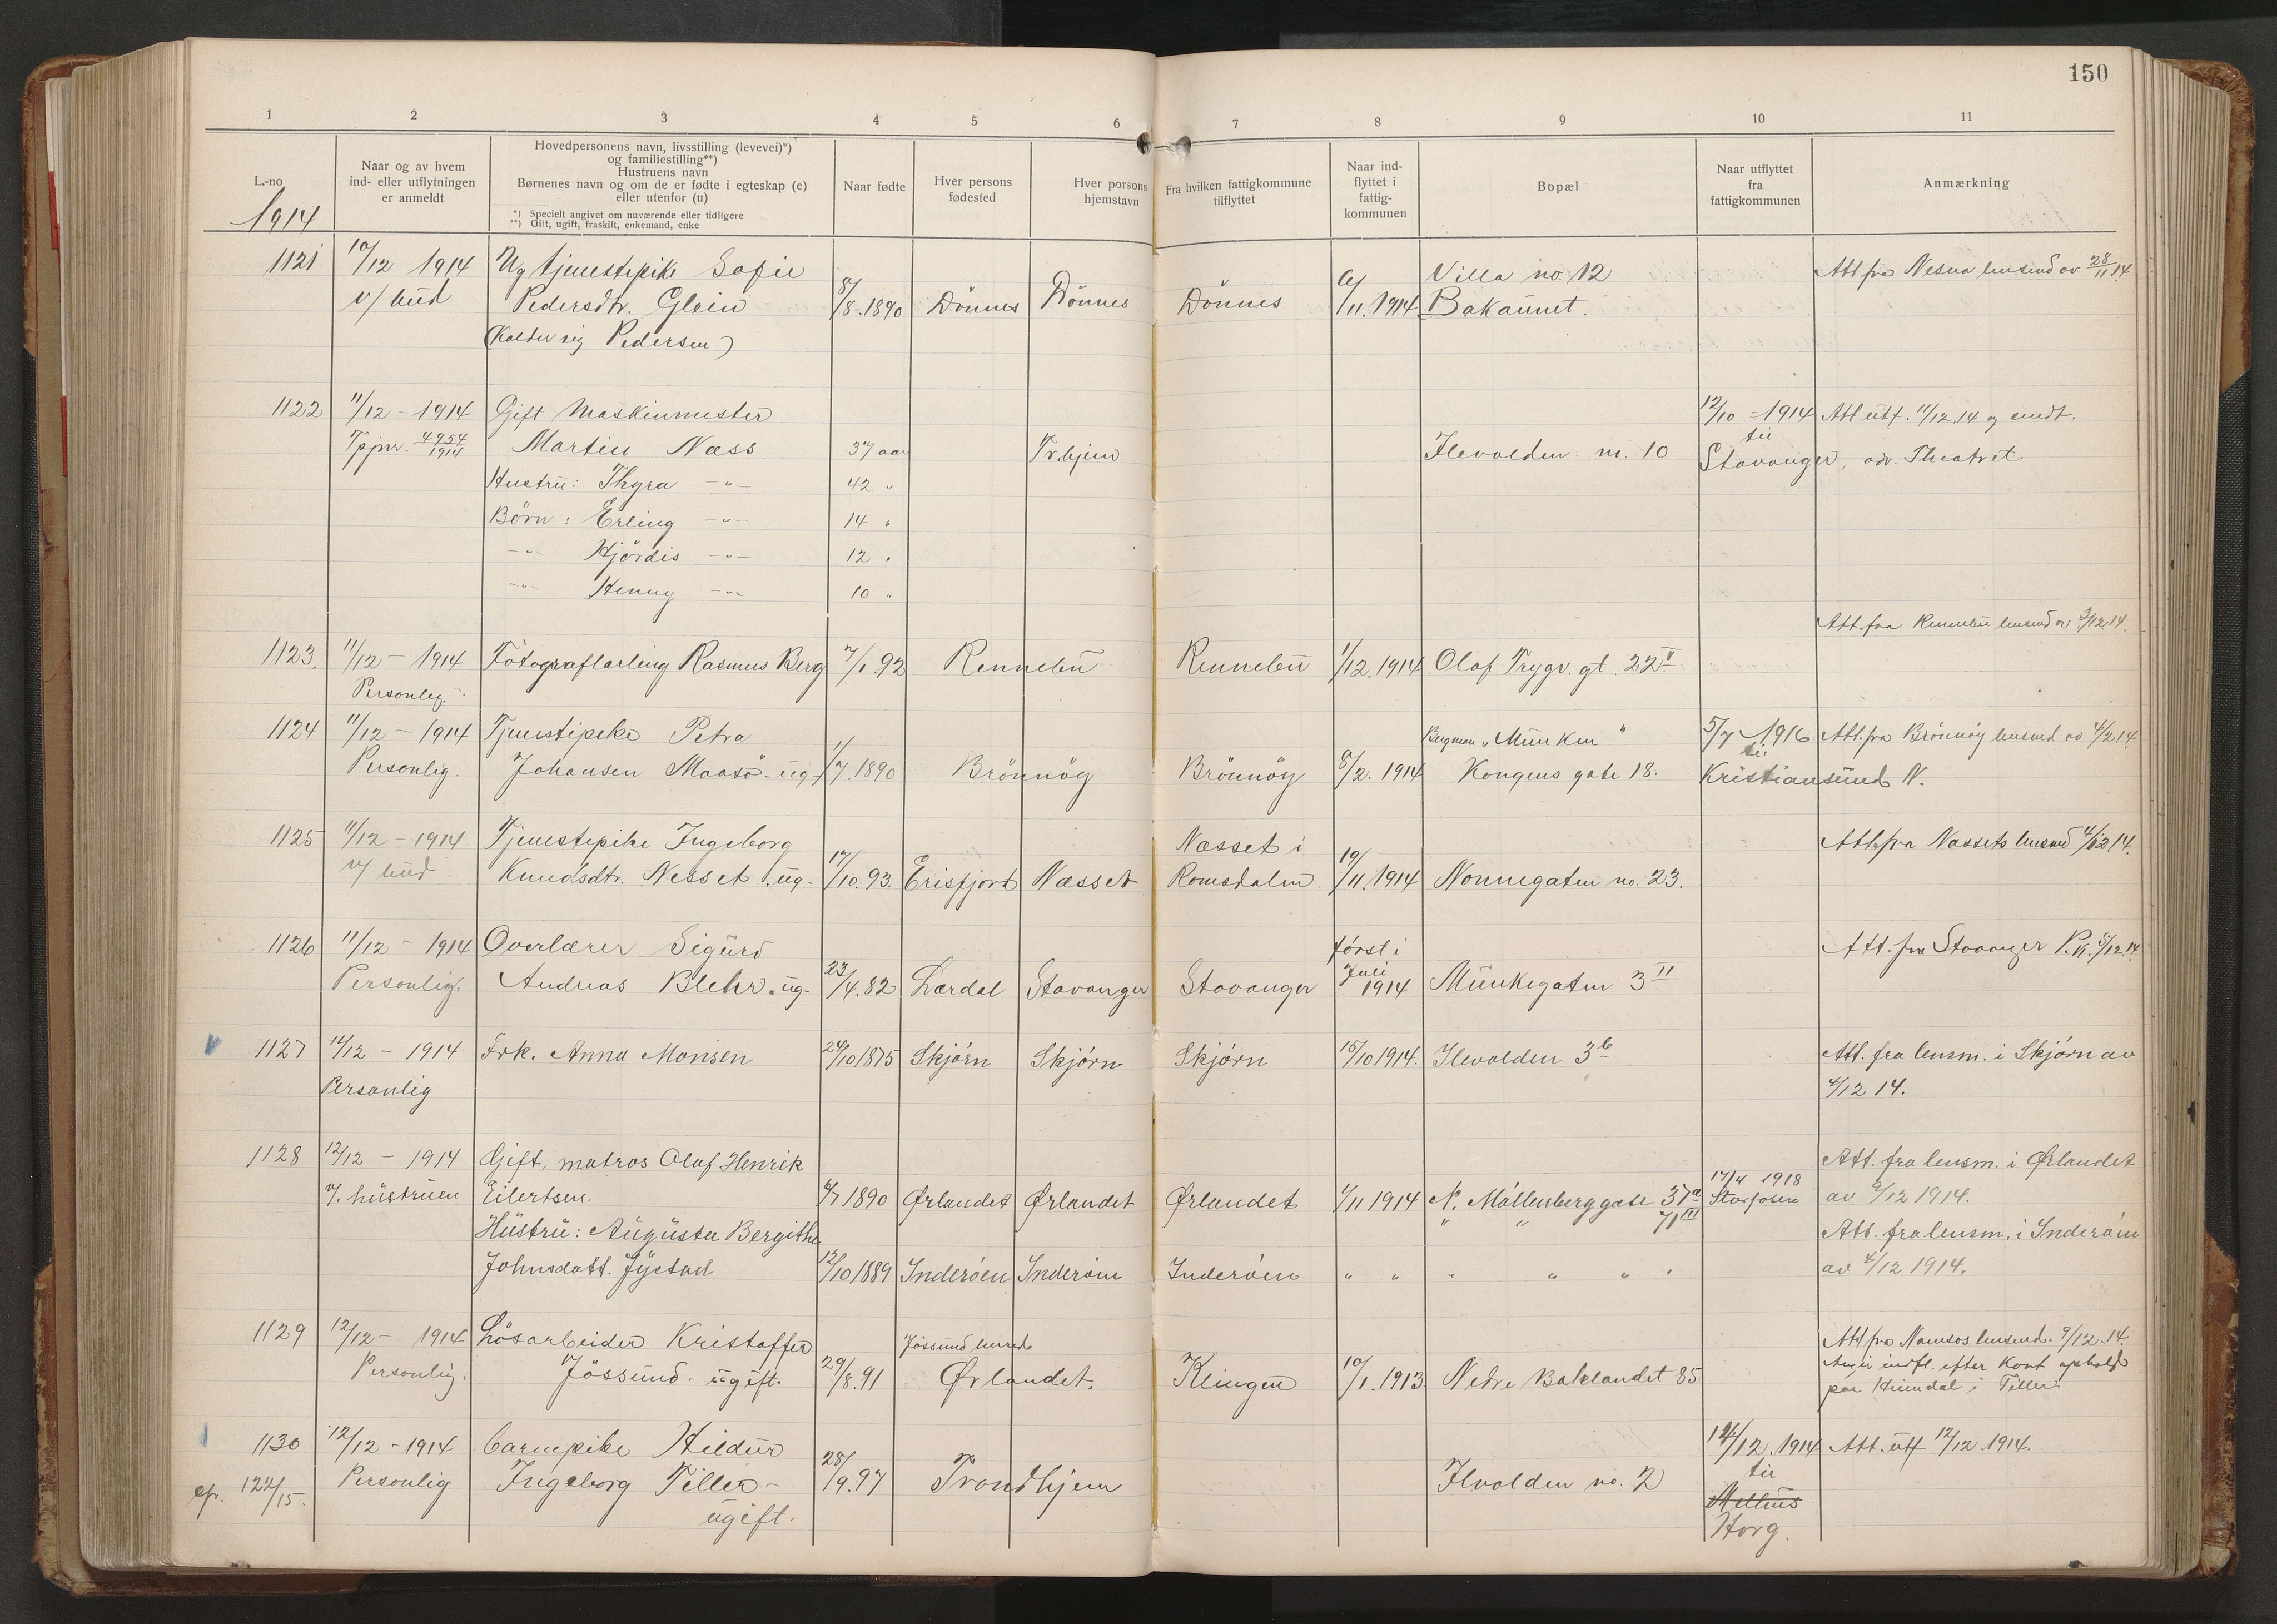 150
1 2 3 4 5 6 7 8 9 10 11
L.-no
1914
Naar og av hvem
ind- eller utflytningen
er anmeldt
Hovedpersonens navn, livsstilling (levevei)*)
og familiestilling**)
Hustruens navn
Børnenes navn og om de er fødte i egteskap (e)
eller utenfor (u)
*) Specielt angivet om nuværende eller tidligere
**) Gift, ugift, fraskilt, enkemand, enke
Naar fødte
Hver persons
fødested
Hver porsons
hjemstavn
Fra hvilken fattigkommune
tilflyttet
Naar ind-
flyttet i
fattig-
kommunen
Bopæl
Naar utflyttet
fra
fattigkommunen
Anmærkning
1121 10/12 1914 Ug tjenestepike Sofie Villa no. 12 Att fra Nesna lensmd av 28/11 14
v/ bud Pedersdtr. Glein 8/8.1890 Dönnes Dönnes Dönnes /11.1914 Bakaunet.
(Kalder sig Pedersen)
1122 11/12 - 1914 Gift Maskinmester 12/10 - 1914 Att utf. 11/12.14 og sendt.
Tpjnr. 4954/1914 Martin Næss 37 aar Tr.hjem Ilevolden no. 10 til Stavanger, adr. Theatret
Hustru: Thyra -"- 42 "
Börn: Erling -"- 14 "
-"- Hjördis -"- 12 "
-"- Henny -"- 10 "
Att. fra Rennebu lensmd av 3/12 14.
1123. 11/12 - 1914 Fotograflærling Rasmus Berg 7/1.92 Rennebu Rennebu 1/12.1914 Olaf Trygv. gt. 22 V
Personlig.
1124 11/12 - 1914 Tjenestepike Petra Bergman v Munken " 5/7 - 1916 Att. fra Brönnöy lensmd av 4/2 14
Personlig. Johansen Maasö - ug - 1/7.1890 Brönnöy Brönnöy 8/2.1914 Kongens gate 18. til Kristiansund N.
1125 11/12 - 1914 Tjenestepike Ingeborg Næsset i Att. fra Næssets lensmd 4/12 14.
v/ bud Knudsdtr. Nesset - ug - 17/10.93. Erisfjord Næsset Romsdalen 19/11.1914 Nonnegaten no. 23.
1126 11/12 - 1914 Overlærer Sigurd först i Att. fra Stavanger P.K. 5/12.14.
Personlig. Andreas Blehr - ug - 23/4.82 Lærdal Stavanger Stavanger Juli 1914 Munkegaten 3 II
1127 12/12 - 1914 Frk. Anna Monsen 24/10 1875 Skjórn Skjórn Skjórn 15/10 1914. Ilevolden 3b Att. fra lensm. i Skjórn av
Personlig 4/12 14.
1128 12/12 - 1914 Gift, matros Olaf Henrik Att. fra lensm. i Ørlandet
v/. hustruen Eilertsen /7 1890 Ørlandet Ørlandet Ørlandet /11 1914 N. Möllenberggate 37a 17/4 1918 Storfosen av 2/12 1914.
Hustru: Augusta Bergithe " " 71 III Att. fra lensm. i Inderóen
Johnsdatt. Jystad 12/10 1889 Inderóen Inderóen Inderóen " " " " " " av 4/12 1914.
1129 12/12 - 1914 Lösarbeider Kristoffer Jössund herred Att fra Namsos lensmd. 9/12.14
Personlig. Jössund - ugift. 29/8.91 Ørlandet. Klingen 10/1.1913 Nedre Baklandet 85 indfl. efter Kort ophold
paa Heimdal i Tiller
1130 12/12 - 1914 Barnepike Hildur 14/12.1914 Att. utf 12/12.1914.
cfr. 122/15. Personlig Ingeborg Tiller - 28/9.97 Trondhjem Ilvolden no. 2 til
ugift. Melhus
Horg.